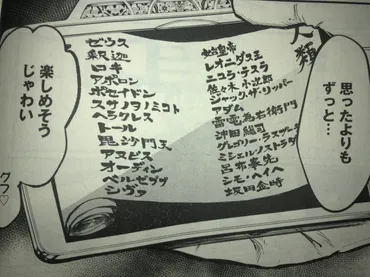 思ったよりも
ずっと…
人類
始皇帝
レオニダス王
ニコラ・テスラ
佐々木小次郎
ジャック・ザ・リッパー
アダム
雷電為右衛門
沖田総司
グレゴリー・ラスプーチン
ミシェル・ノストラダムス
呂布奉先
シモ・ヘイヘ
坂田金時
ゼウス
釈迦
ロキ
アポロン
ポセイドン
スサノヲノミコト
ヘラクレス
トール
毘沙門天
アヌビス
オーディン
ベルゼブブ
シヴァ
楽しめそう
じゃわい
グフ♡